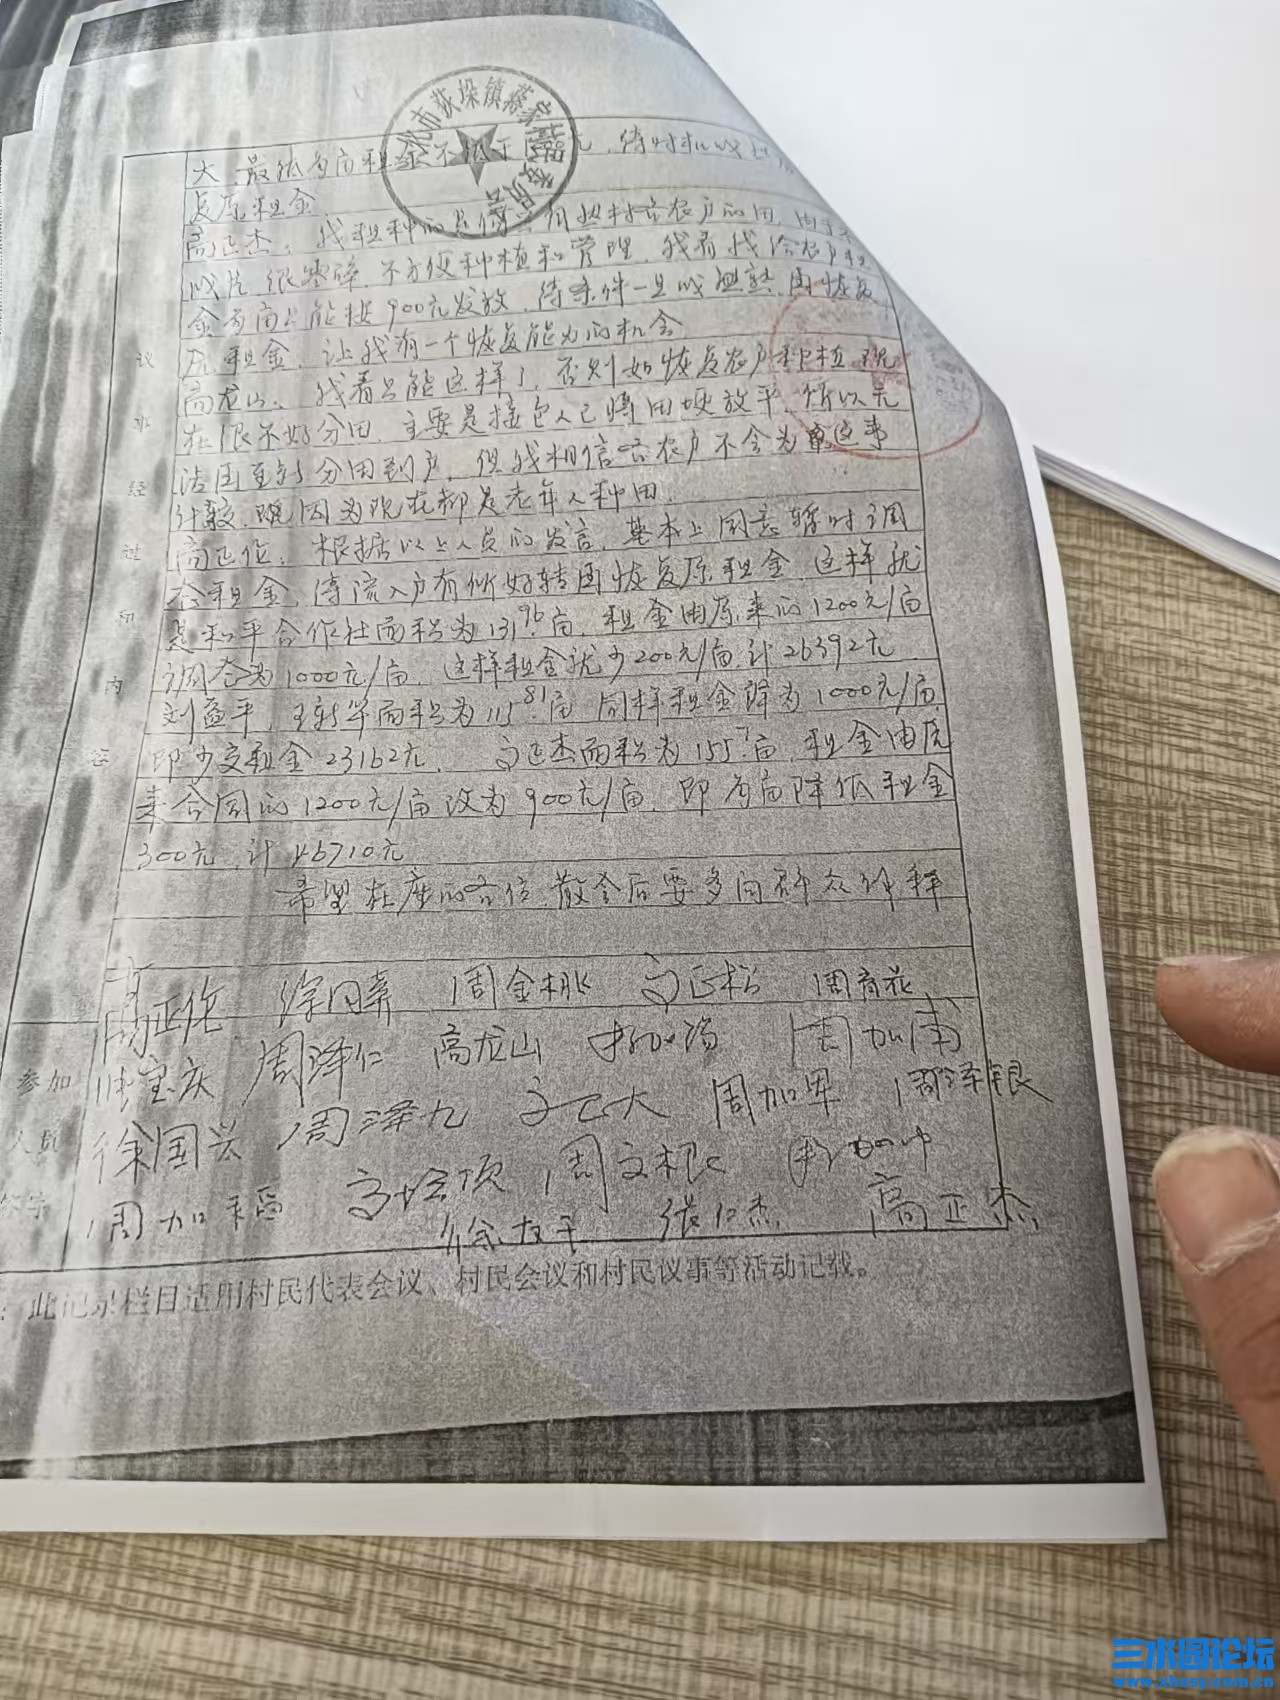 大 最低每亩租金不低于 元,待时机成
复原租金
高正杰:我租种的 村 农户的田,
成片 很零碎,不方便种植和管理,我看 农户
金每亩只能按900元发放,待条件一旦成熟,再恢复
原租金,让我有一个恢复能力的机会
高龙山:我看只能这样了,否则如恢复农户种植 现
在很不好分田,主要是接包人已将田埂放平,所以无
法再重新分田到户,但我相信各农户不会为 这事
计较,因为现在都是老年人种田.
高正伦:根据以上人员的发言,基本上同意暂时调
租金,待流入户有所好转再恢复原租金,这样就
是和平合作社面积为131.96亩,租金由原来的1200元/亩
调 为1000元/亩,这样租金就少200元/亩,计26392元.
刘益平、王 华面积为115.81亩 同样租金降为1000元/亩
即少交租金23162元. 高正杰面积为155.7亩,租金由原
来合同的1200元/亩改为900元/亩,即每亩降低租金
300元,计46710元
希望在座的各位,散会后要多向群众解释
议事经过和内容
高正伦 徐 周金桃 高正松 周育花
张宝庆 周泽仁 高龙山 周加南
参加人员签字
徐国兴 周泽九 高 大 周加军 周泽银
周加 高 周文根
徐 平 张仁杰 高正杰
:此记录栏目适用村民代表会议、村民会议和村民议事等活动记载。
化市荻垛镇蔡家 委员会
三水园论坛
www.xhssy.com.cn